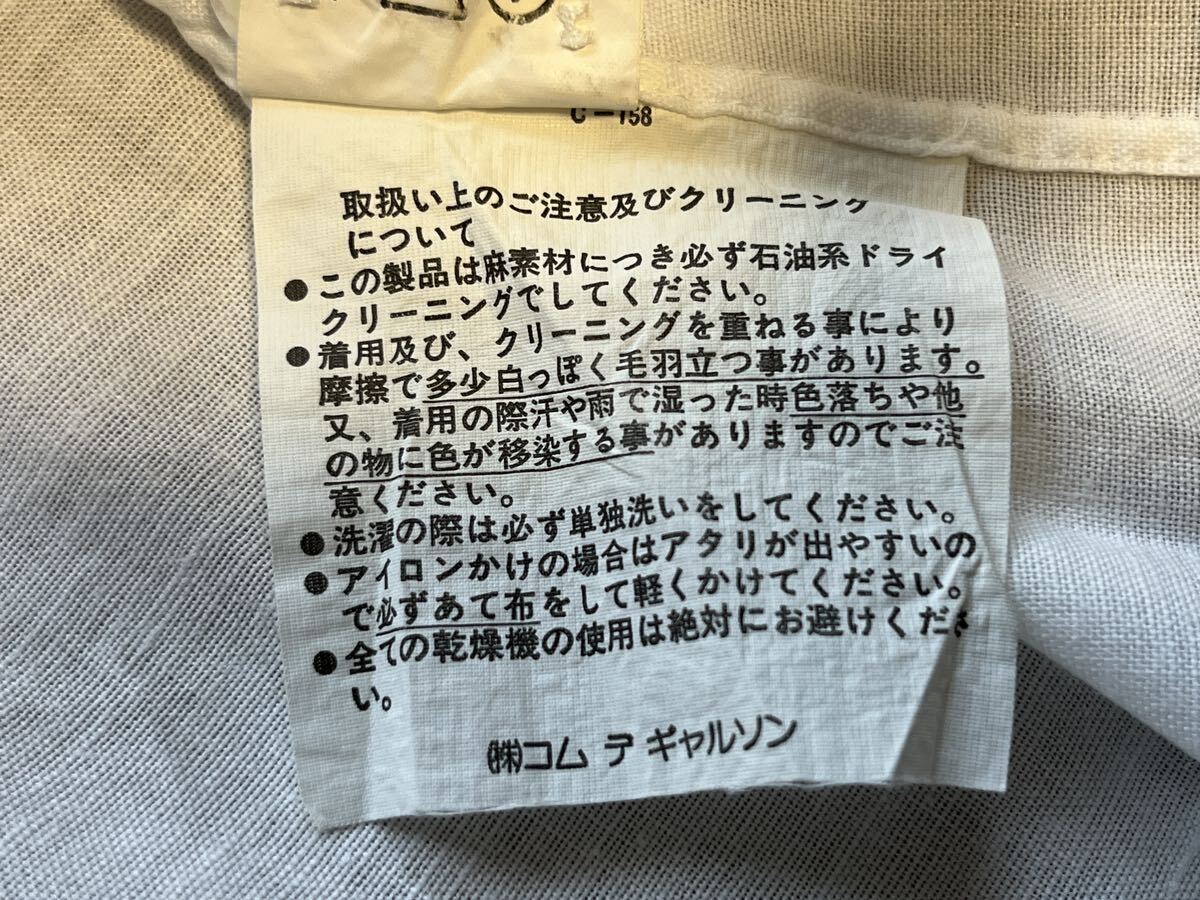 C-158
取扱い上のご注意及びクリーニング
について
●この製品は麻素材につき必ず石油系ドライ
クリーニングでしてください。
●着用及び、クリーニングを重ねる事により
摩擦で多少白っぽく毛羽立つ事があります。
又、着用の際汗や雨で湿った時色落ちや他
の物に色が移染する事がありますのでご注
意ください。
●洗濯の際は必ず単独洗いをしてください。
●アイロンかけの場合はアタリが出やすいの
で必ずあて布をして軽くかけてください。
●全ての乾燥機の使用は絶対にお避けくださ
い。
㈱コム デ ギャルソン